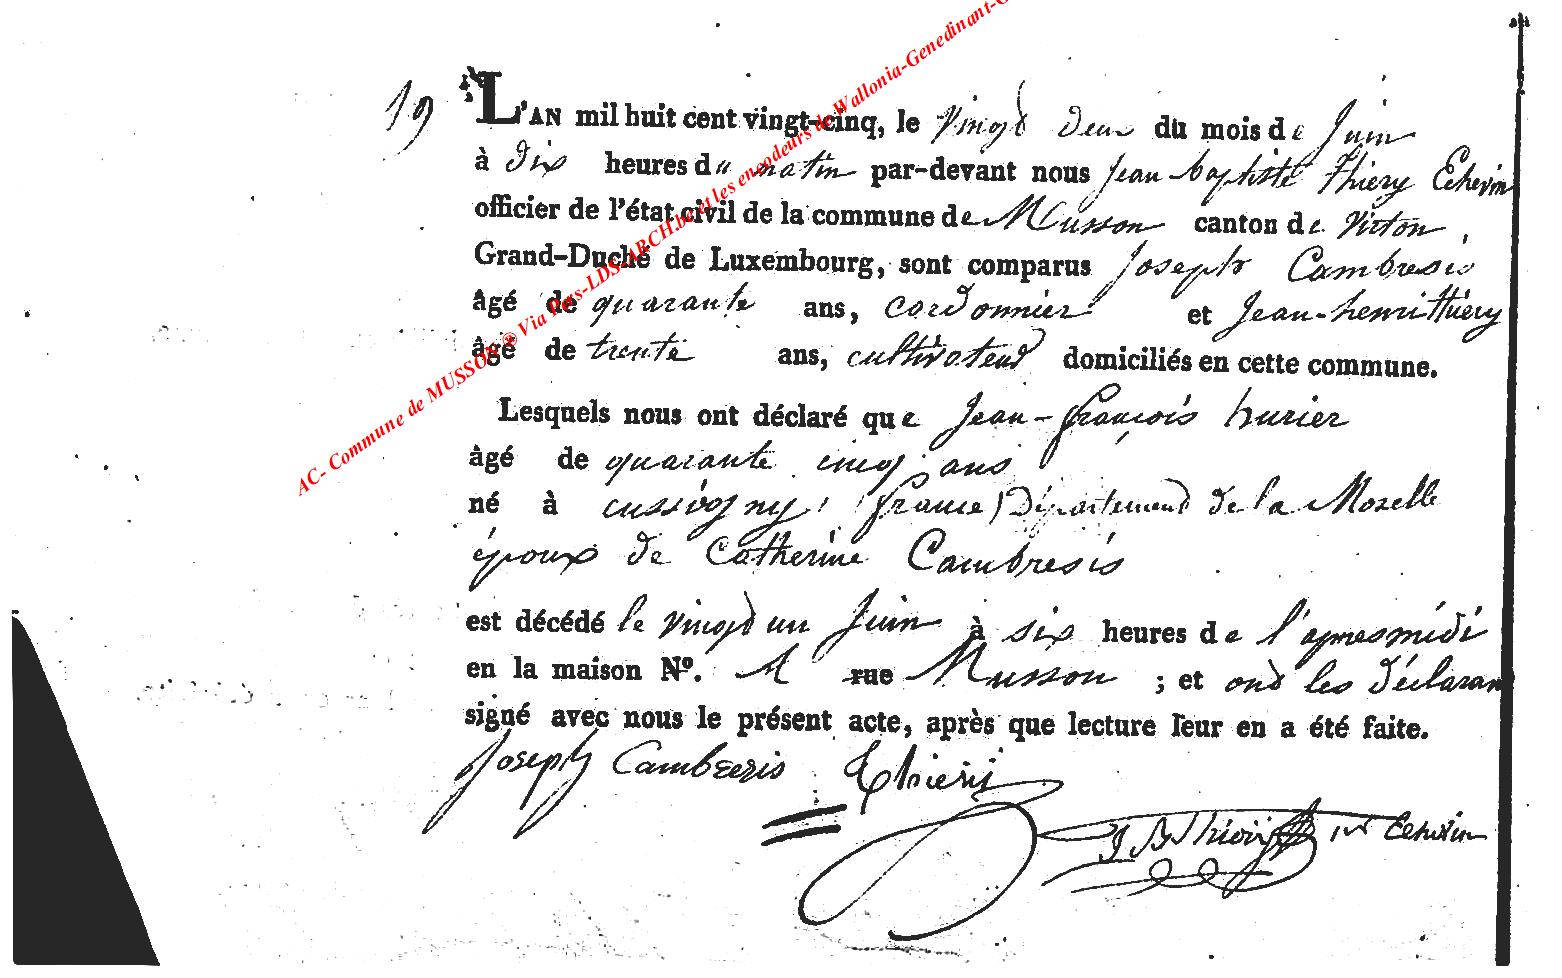 19
L'AN mil huit cent vingt-cinq, le vingt deux du mois de juin
à dix heures du matin par-devant nous jean baptiste thiery Echevin
officier de l'état civil de la commune de Musson canton de virton
Grand-Duché de Luxembourg, sont comparus joseph Cambresis
âgé de quarante ans, cordonnier et jean-henri thiery
âgé de trente ans, cultivateur domiciliés en cette commune.
Lesquels nous ont déclaré que jean-françois hurier
âgé de quarante cinq ans
né à cussigny, france) Département de la Moselle
époux de Catherine Cambresis
est décédé le vingt un juin à six heures de l'apresmidi
en la maison Nº. rue Musson ; et ont les déclaran
signé avec nous le présent acte, après que lecture leur en a été faite.
joseph Cambresis Thieri
J B Thiery 1er Echevin
AC- Commune de MUSSON ® Via Pers-LDS-ARCH.be et les encodeurs de Wallonia-Genedinant-G